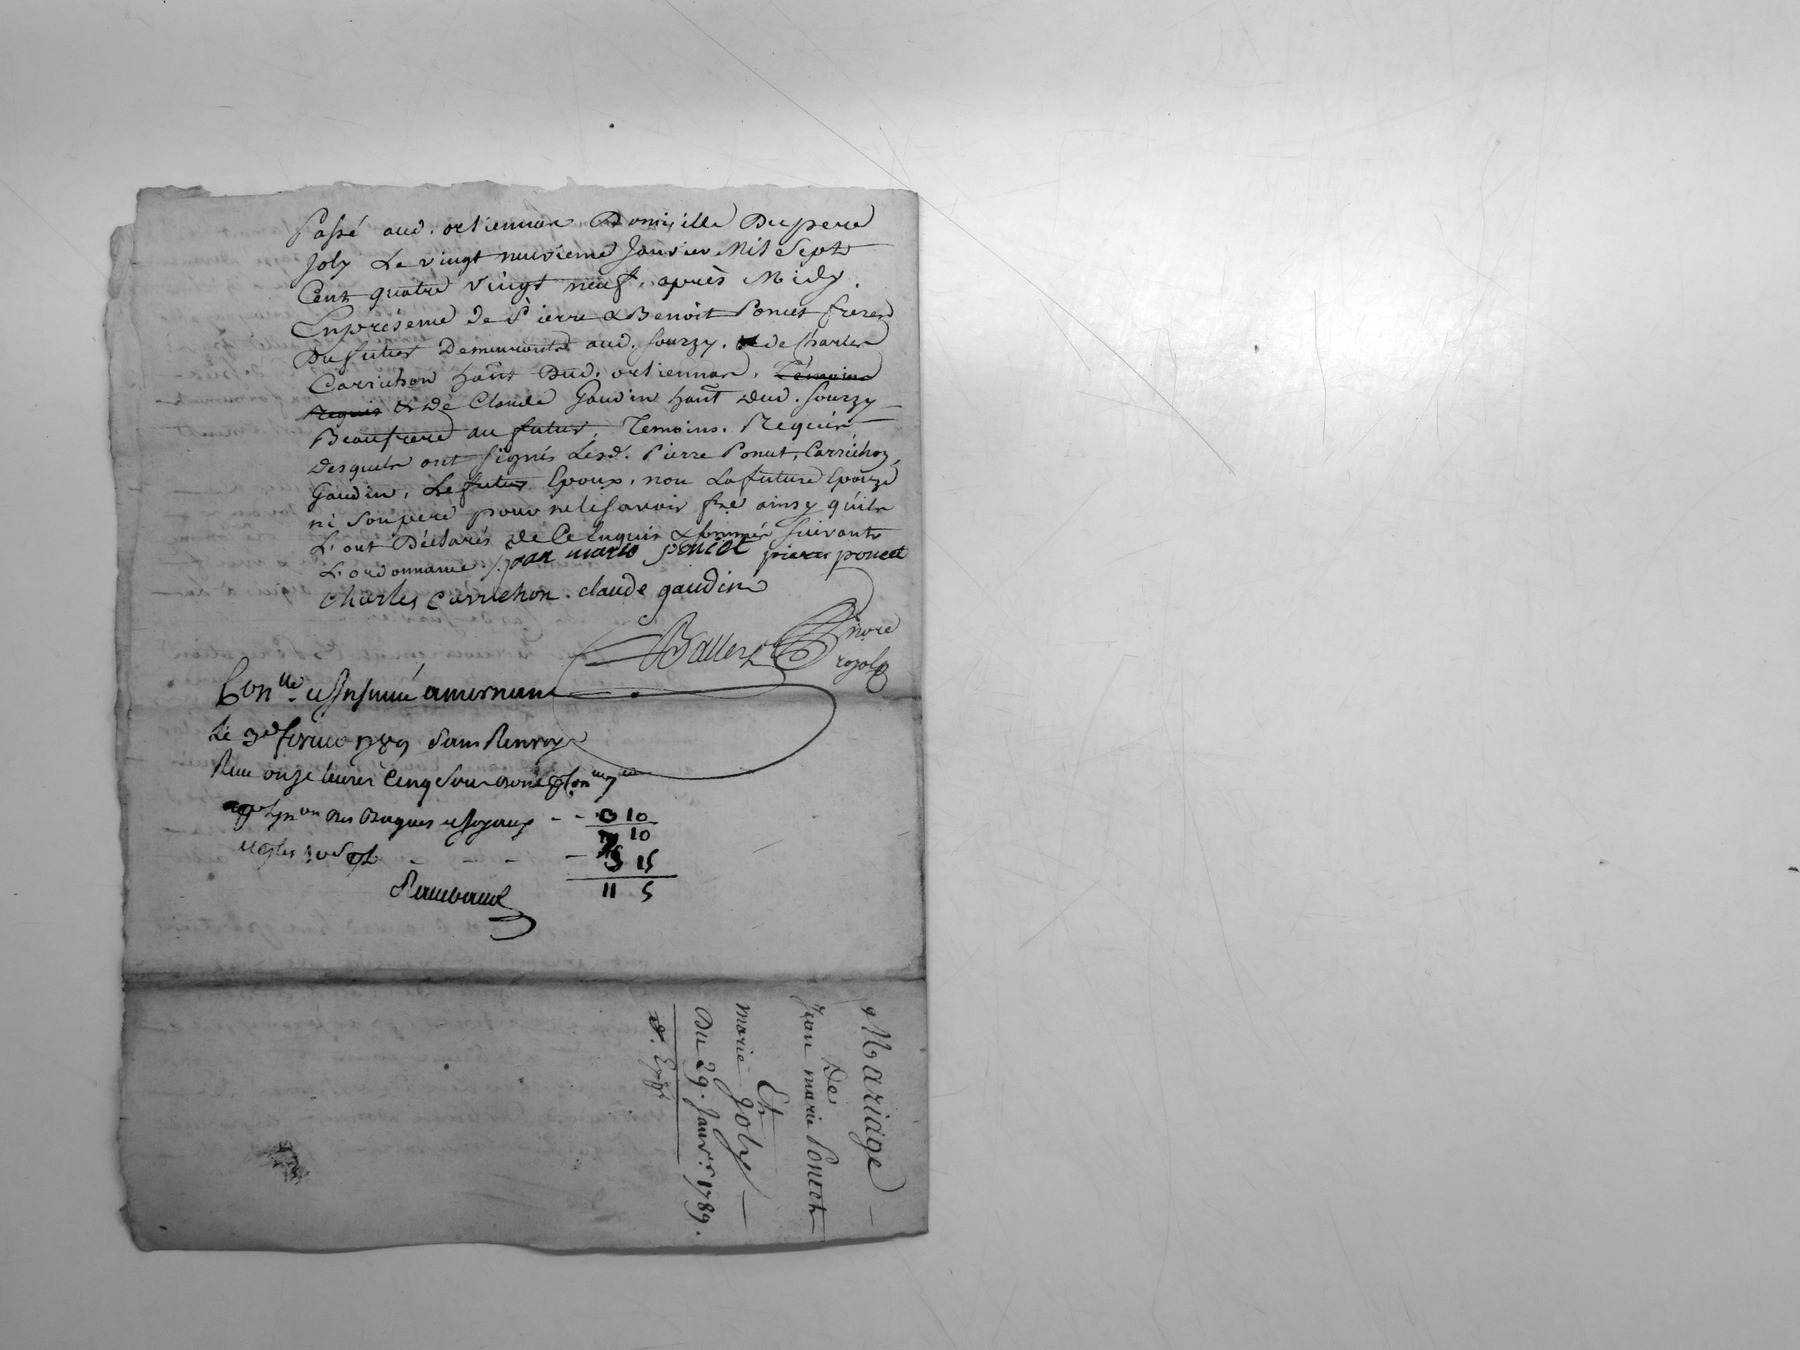 Passé aud. ortiennar Domicille Du pere
Joly Le vingt neuvieme Janvier Mil Sept
Cent quatre vingt neuf. après Midy.
En présence de Pierre & Benoit Poncet freres
Du futur Demeurants aud. Sourzy. & de Charles
Carrichon hant Dud. ortiennar. Témoins
requis & De Claude Gaudin hant dud. Sourzy
Beaufrere au futur, Temoins. Requis
Desquels ont signés Lesd. Pierre Poncet, Carrichon,
Gaudin, Le futur Epoux, non La future Epouze
ni Son pere pour ne le sçavoir fre ainsy quils
L'ont Déclarés de Ce Enquis & sommés suivant
L'ordonnance ./. jean marie poncet pierre poncet
Charles Carrichon . claude gaudin
nore
royal
Conlle et Insinué a mornant
Le 3e fevrier 1789 Sans Renvoy
Reçu onze livres Cinq Sous
des Bagues et Joyaux - - 0 10
7 10
et les 10s pl - - - - 3 15
11 5
Mariage
De
Jean marie Poncet
Et
marie Joly
Du 29. Janvr. 1789.